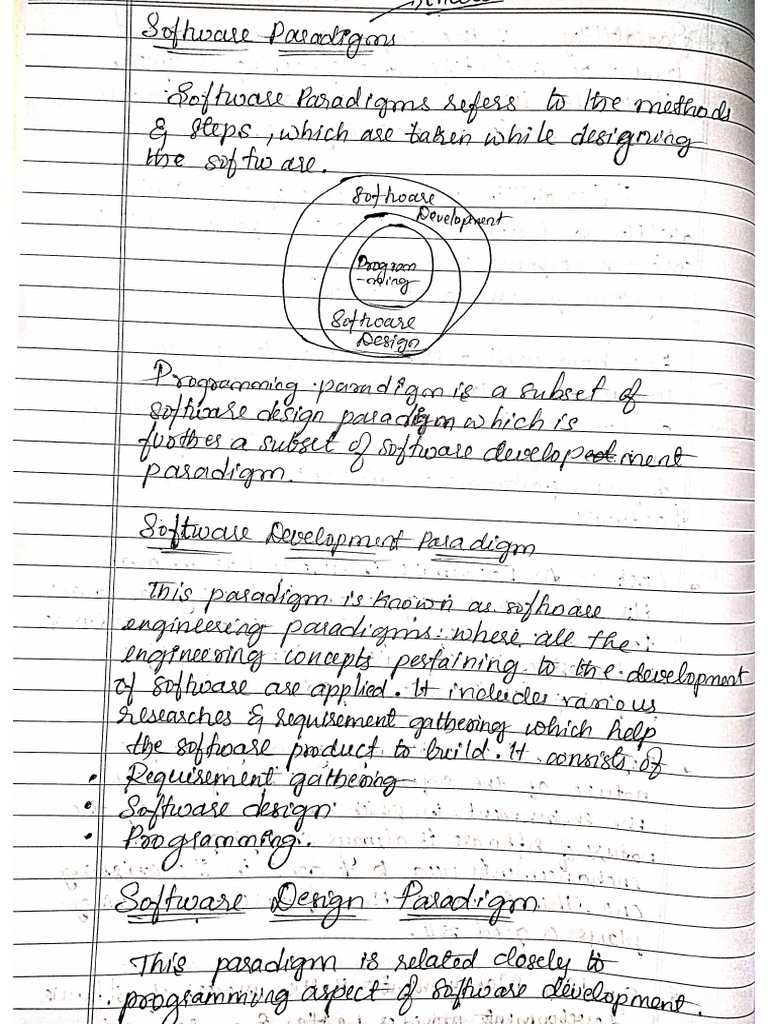 Software Paradigms
Software Paradigms refers to the methods
& steps, which are taken while designing
the software.
Software
Development
Program
-ming
Software
Design
Programming paradigm is a subset of
software design paradigm which is
further a subset of software development
paradigm.
Software Development Paradigm
This paradigm is known as software
engineering paradigms where all the
engineering concepts pertaining to the development
of software are applied. It includes various
researches & requirement gathering which help
the software product to build. It consists of
• Requirement gathering
• Software design
• Programming.
Software Design Paradigm
This paradigm is related closely to
programming aspect of software development.